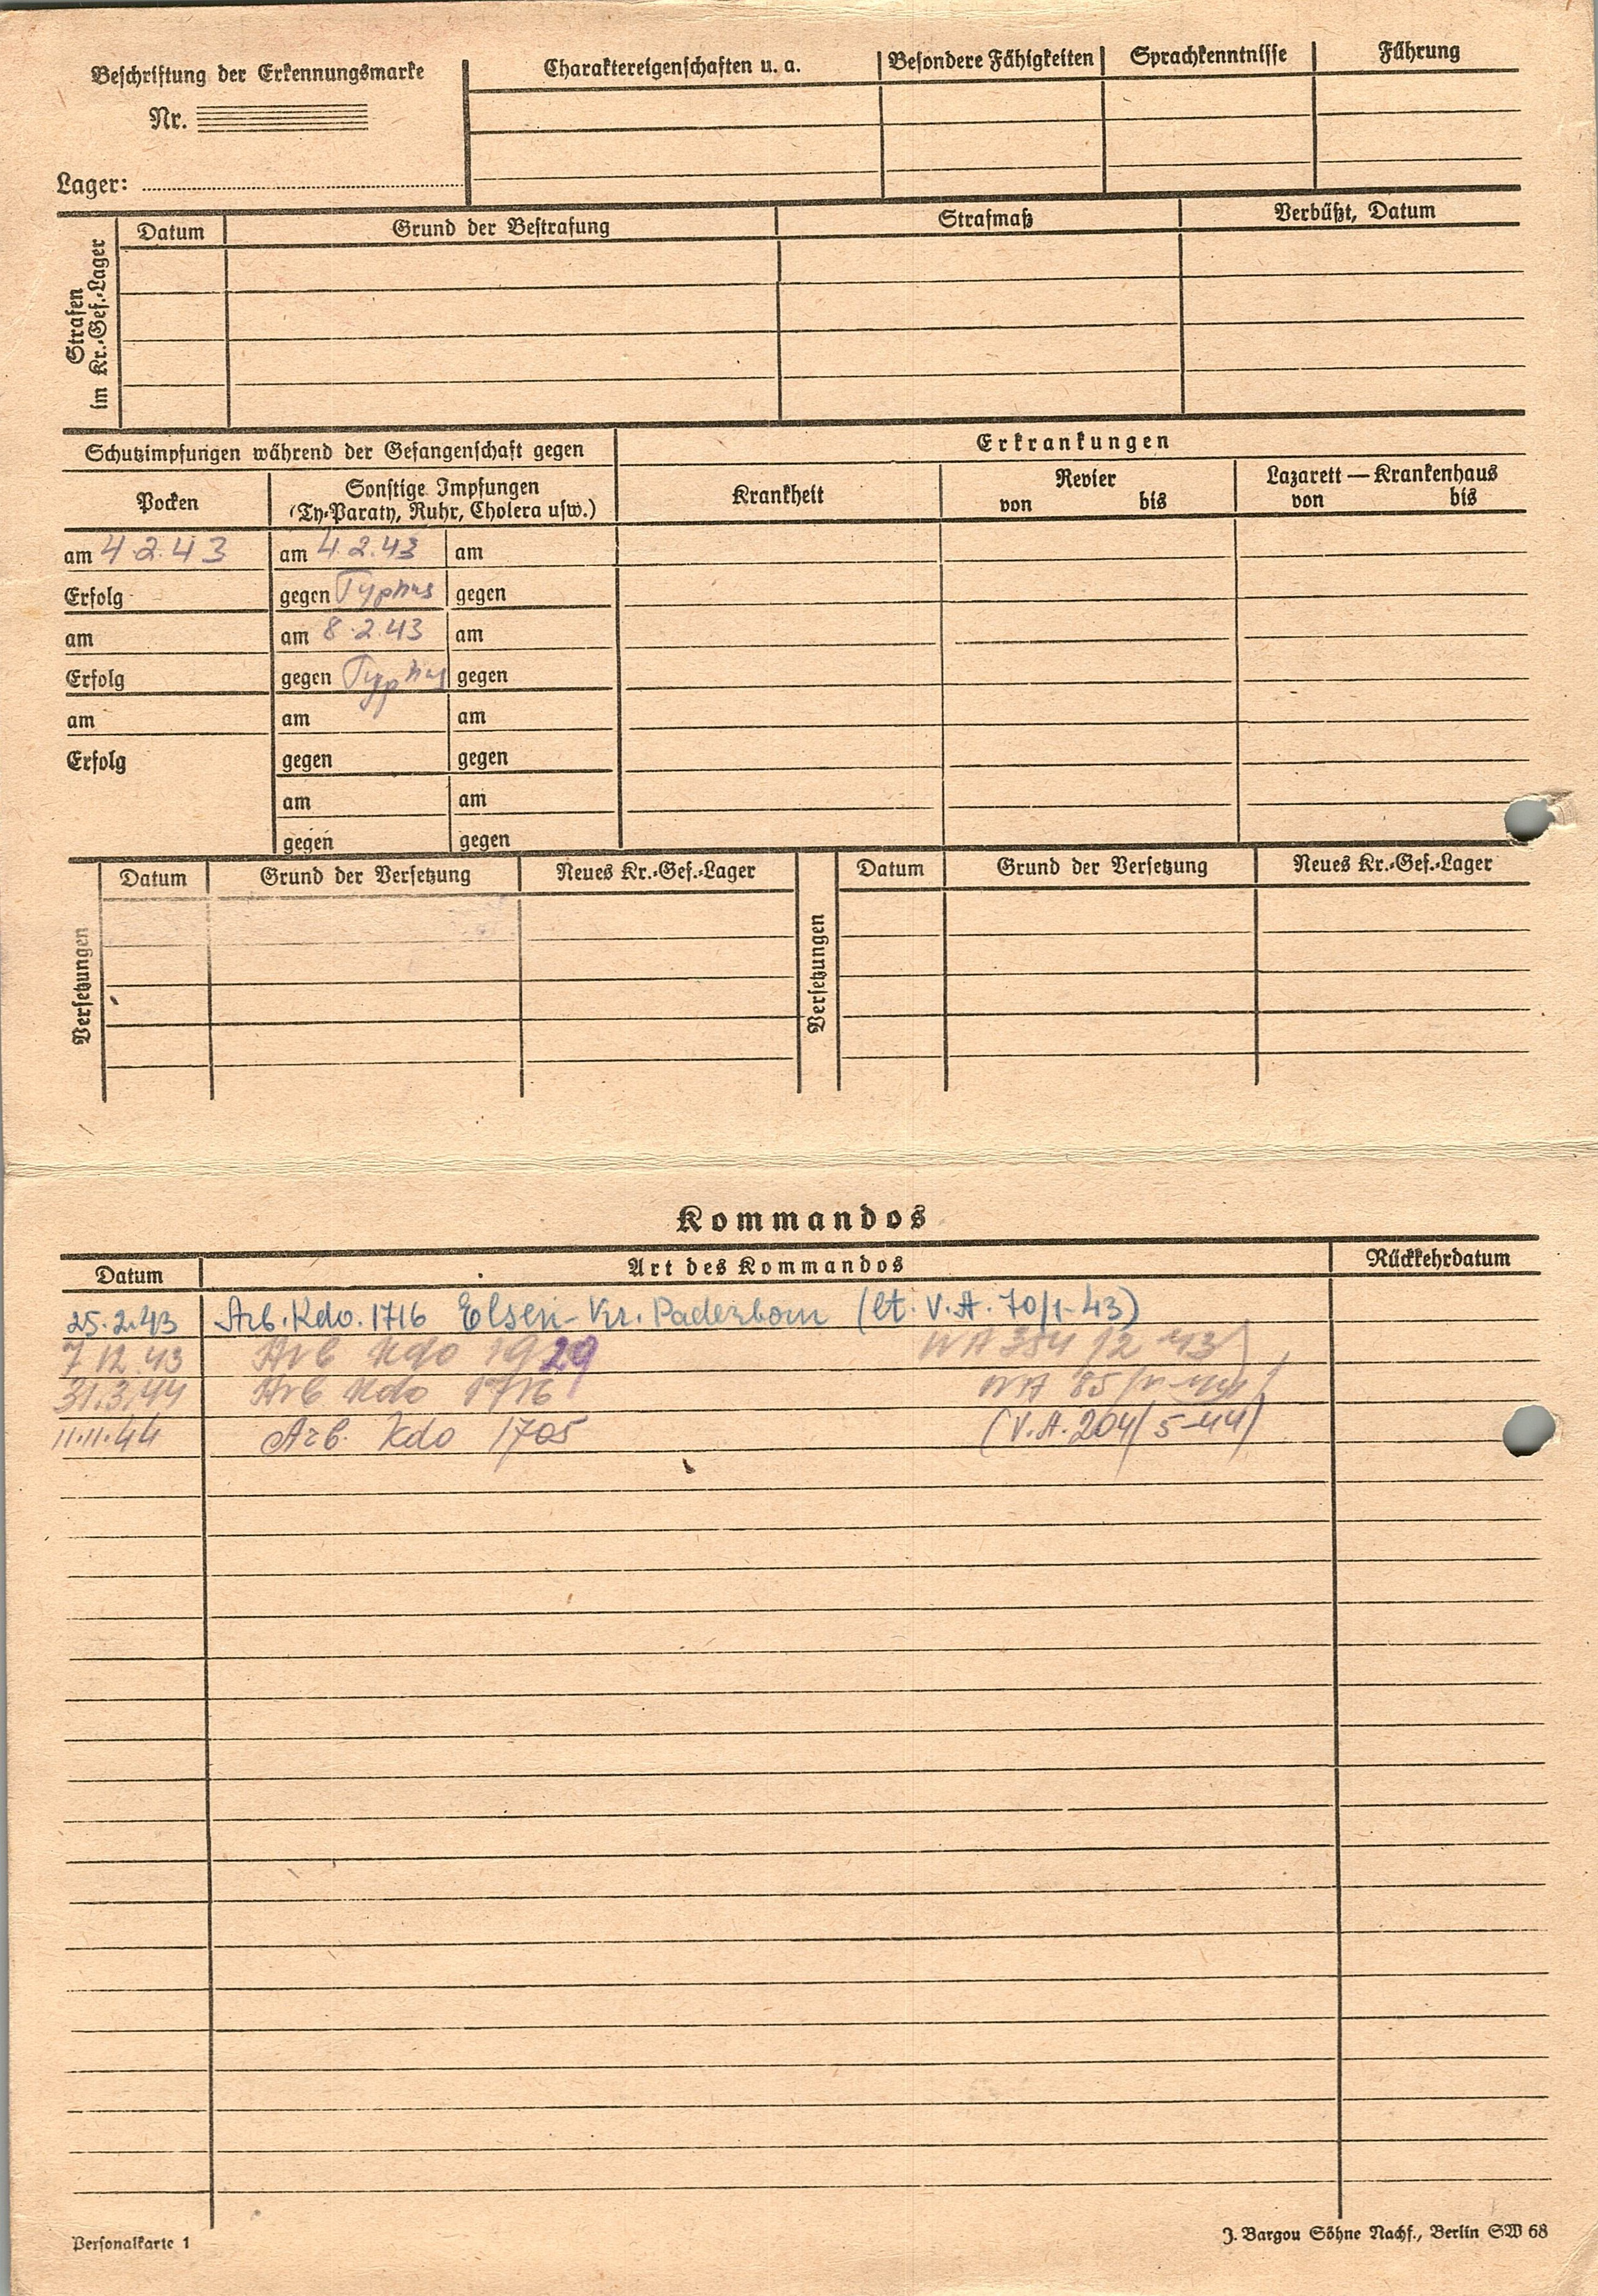 Beschriftung der Erkennungsmarke
Nr.
Lager:
Charaktereigenschaften u. a.
Besondere Fähigkeiten
Sprachkenntnisse
Führung
Strafen
im Kr.-Gef.-Lager
Datum
Grund der Bestrafung
Strafmaß
Verbüßt, Datum
Schutzimpfungen während der Gefangenschaft gegen
Erkrankungen
Pocken
Sonstige Impfungen
(Ty-Paraty, Ruhr, Cholera usw.)
Krankheit
Revier
von bis
Lazarett — Krankenhaus
von bis
am 4.2.43 am 4.2.43 am
Erfolg gegen Typhus gegen
am am 8.2.43 am
Erfolg gegen Typhus gegen
am am am
Erfolg gegen gegen
am am
gegen gegen
Versetzungen
Datum
Grund der Versetzung
Neues Kr.-Gef.-Lager
Versetzungen
Datum
Grund der Versetzung
Neues Kr.-Gef.-Lager
Kommandos
Datum Art des Kommandos Rückkehrdatum
25.2.43 Arb. Kdo. 1716 Elsen- Kr. Paderborn (lt. V.A. 70/1-43)
7 12 43 Arb Kdo 1929 354 12 43
31.3.44 Arb Kdo 1716 85
11.11.44 Arb. Kdo 1705 (V.A. 204/5-44)
Personalkarte 1
J. Bargou Söhne Nachf., Berlin SW 68